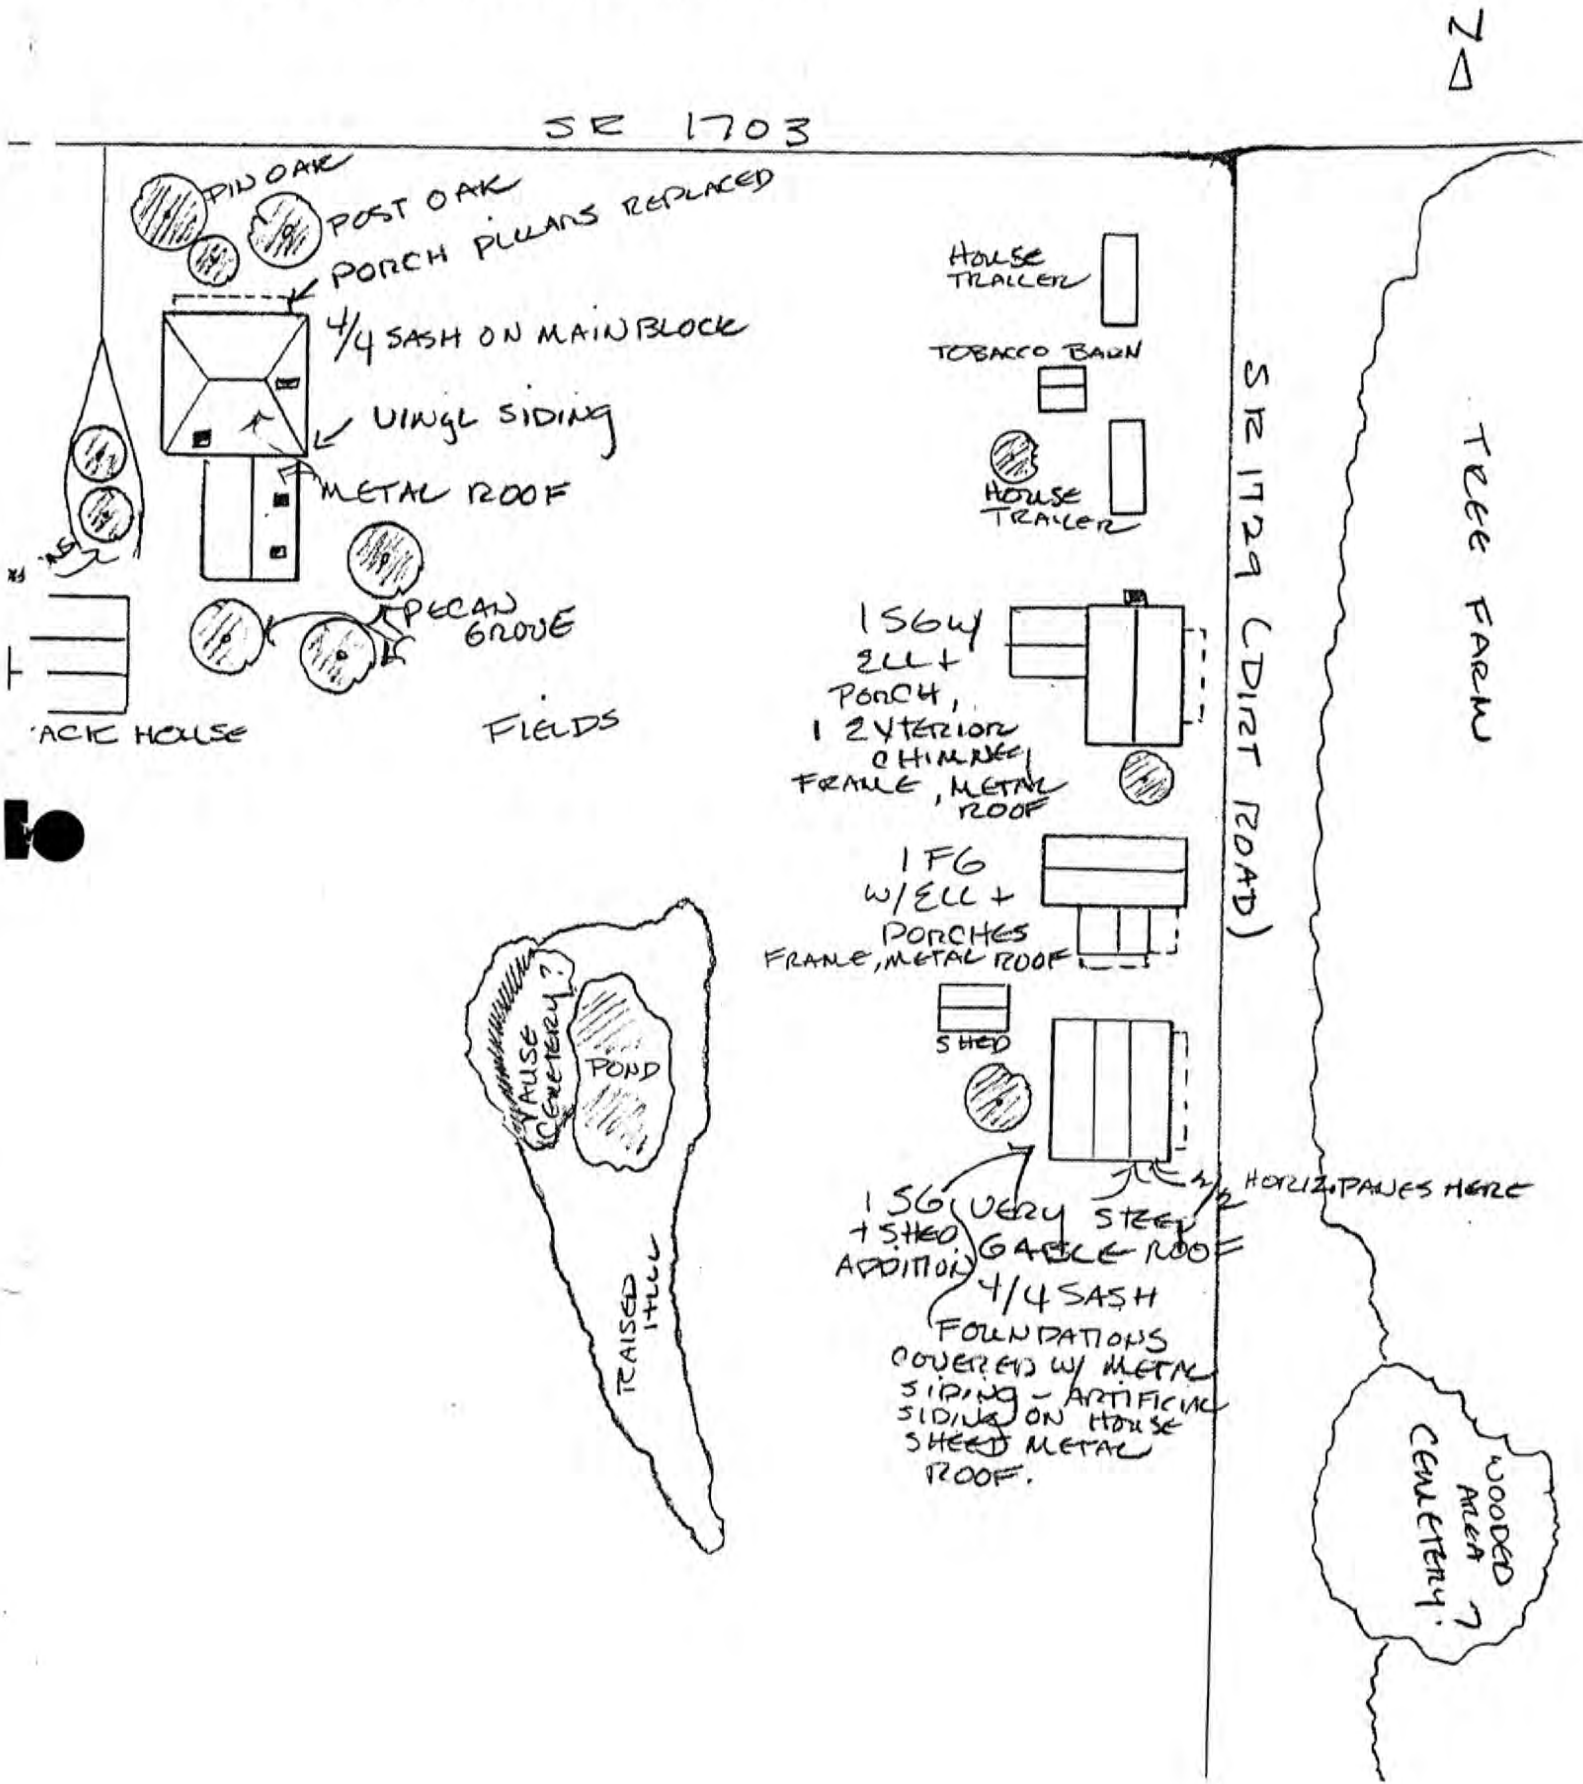 N
SR 1703
PIN OAK
POST OAK
PORCH PILLARS REPLACED
4/4 SASH ON MAIN BLOCK
VINYL SIDING
METAL ROOF
PECAN
GROVE
ACK HOUSE
FIELDS
HOUSE
TRAILER
TOBACCO BARN
HOUSE
TRAILER
SR 1729 (DIRT ROAD)
TREE FARM
1 SG W/
ELL +
PORCH,
1 EXTERIOR
CHIMNEY
FRAME, METAL
ROOF
1 FG
W/ ELL +
PORCHES
FRAME, METAL ROOF
SHED
VAUSE
CEMETERY?
POND
RAISED
HILL
2/2 HORIZ. PANES HERE
1 SG
+ SHED
ADDITION
VERY STEEP
GABLE ROOF
4/4 SASH
FOUNDATIONS
COVERED W/ METAL
SIDING - ARTIFICIAL
SIDING ON HOUSE
SHEED METAL
ROOF.
WOODED
AREA
CEMETERY?